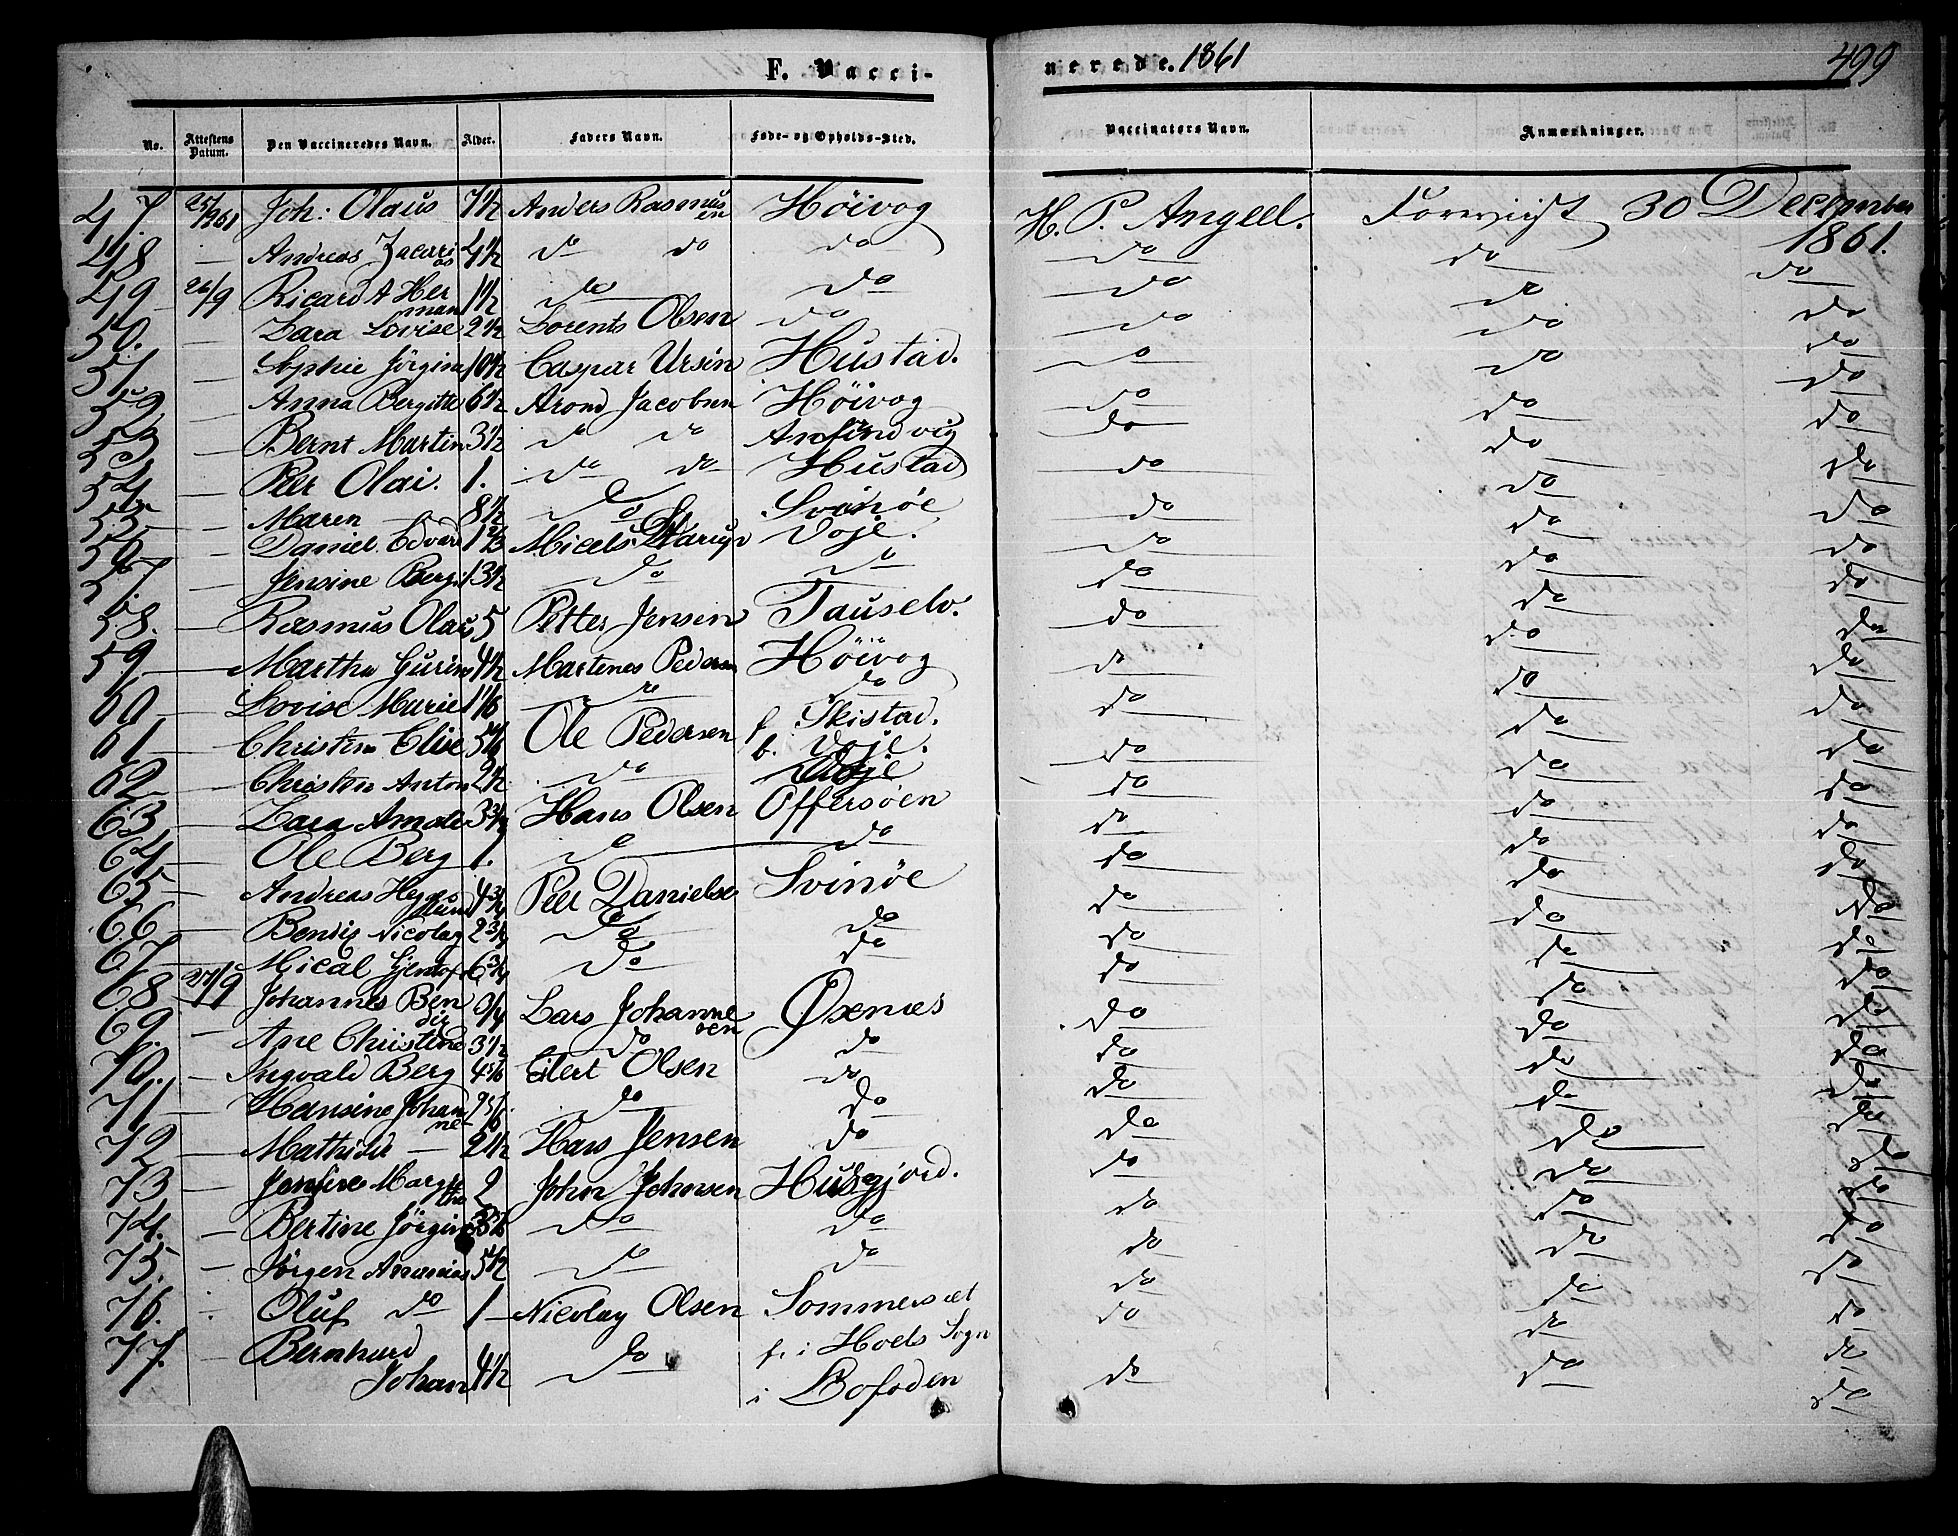 F. Vacci-
nerede. 1861
499
No. Attestens Datum. Den Vaccineredes Navn. Alder. Faders Navn. Føde- og Opholds-Sted. Vaccinators Navn. Anmærkninger.
47. 25/9 61 Joh: Olaus 7 1/2 Anders Rasmussen Höivog H. P. Angell. Forevigst 30 December 1861.
48 — Andreas Zacarias 4 1/2 do do do do do do
49 26/9 Ricard A Herman 1 1/2 do do do do do
50. — Lara Lovise 2 1/2 Lorents Olsen do do do do
51 — Sophie Jörgine 10 1/2 Caspar Ursin Hustad. do do do
52 — Anna Bergitte 6 1/2 Arond Jacobsen Höivog do do do
53 — Bernt Martin 3 1/2 do do Anfindvig do do do
54 — Peer Olai. 1. do do Hustad do do do
55 — Maren — 8 1/2 do Svinöe do do do
56 — Daniel Edvard 1 2/3 Micels Voje. do do do
57. — Jensine Bergi 13 1/2 do do do do do
58. — Rasmus Olaus 5 Petter Jensen Tauselv. do do do
59 — Martha Gurine 4 1/2 Martenes Pedersen Höivog do do do
60 — Lovise Marie 1 1/6 do do do do do
61 — Christen Elise Ole Pedersen f. Skistad. b. Voje. do do do
62 — Christen Anton 2 1/2 do Voje do do do
63 — Lara Amalie 3 3/4 Hans Olsen Offersöen do do do
64 — Ole Berg 1. do do do do do
65 — Andreas Hegelund 4 3/4 Peer Danielse Svinöe do do do
66 — Bendix Nicolay 2 3/4 do do do do do
67 — Mical 6 3/4 do do do do do
68 27/9 Johannes Bendix 3/4 Lars Johannesen Øxenæs do do do
69. — Ane Christine 3 1/2 do do do do do
70. — Ingvald Berg 4 5/6 Eilert Olsen do do do do
71 — Hansine Johanne 2 5/6 do do do do do
72 — Mathilde — 2 1/2 Hans Jensen do do do do
73 — Jensine Margretha 2 John Johnsen do do do
74. — Bertine Jörgine do do do do do
75. — Jörgen Ananias 5 1/2 do do do do do
76. Oluf do 1 — Nicolay Olsen Sommersæt do do do
77. — Bernhard Johan 4 1/2 do f. i Hoels Sogn i Lofoden do do do